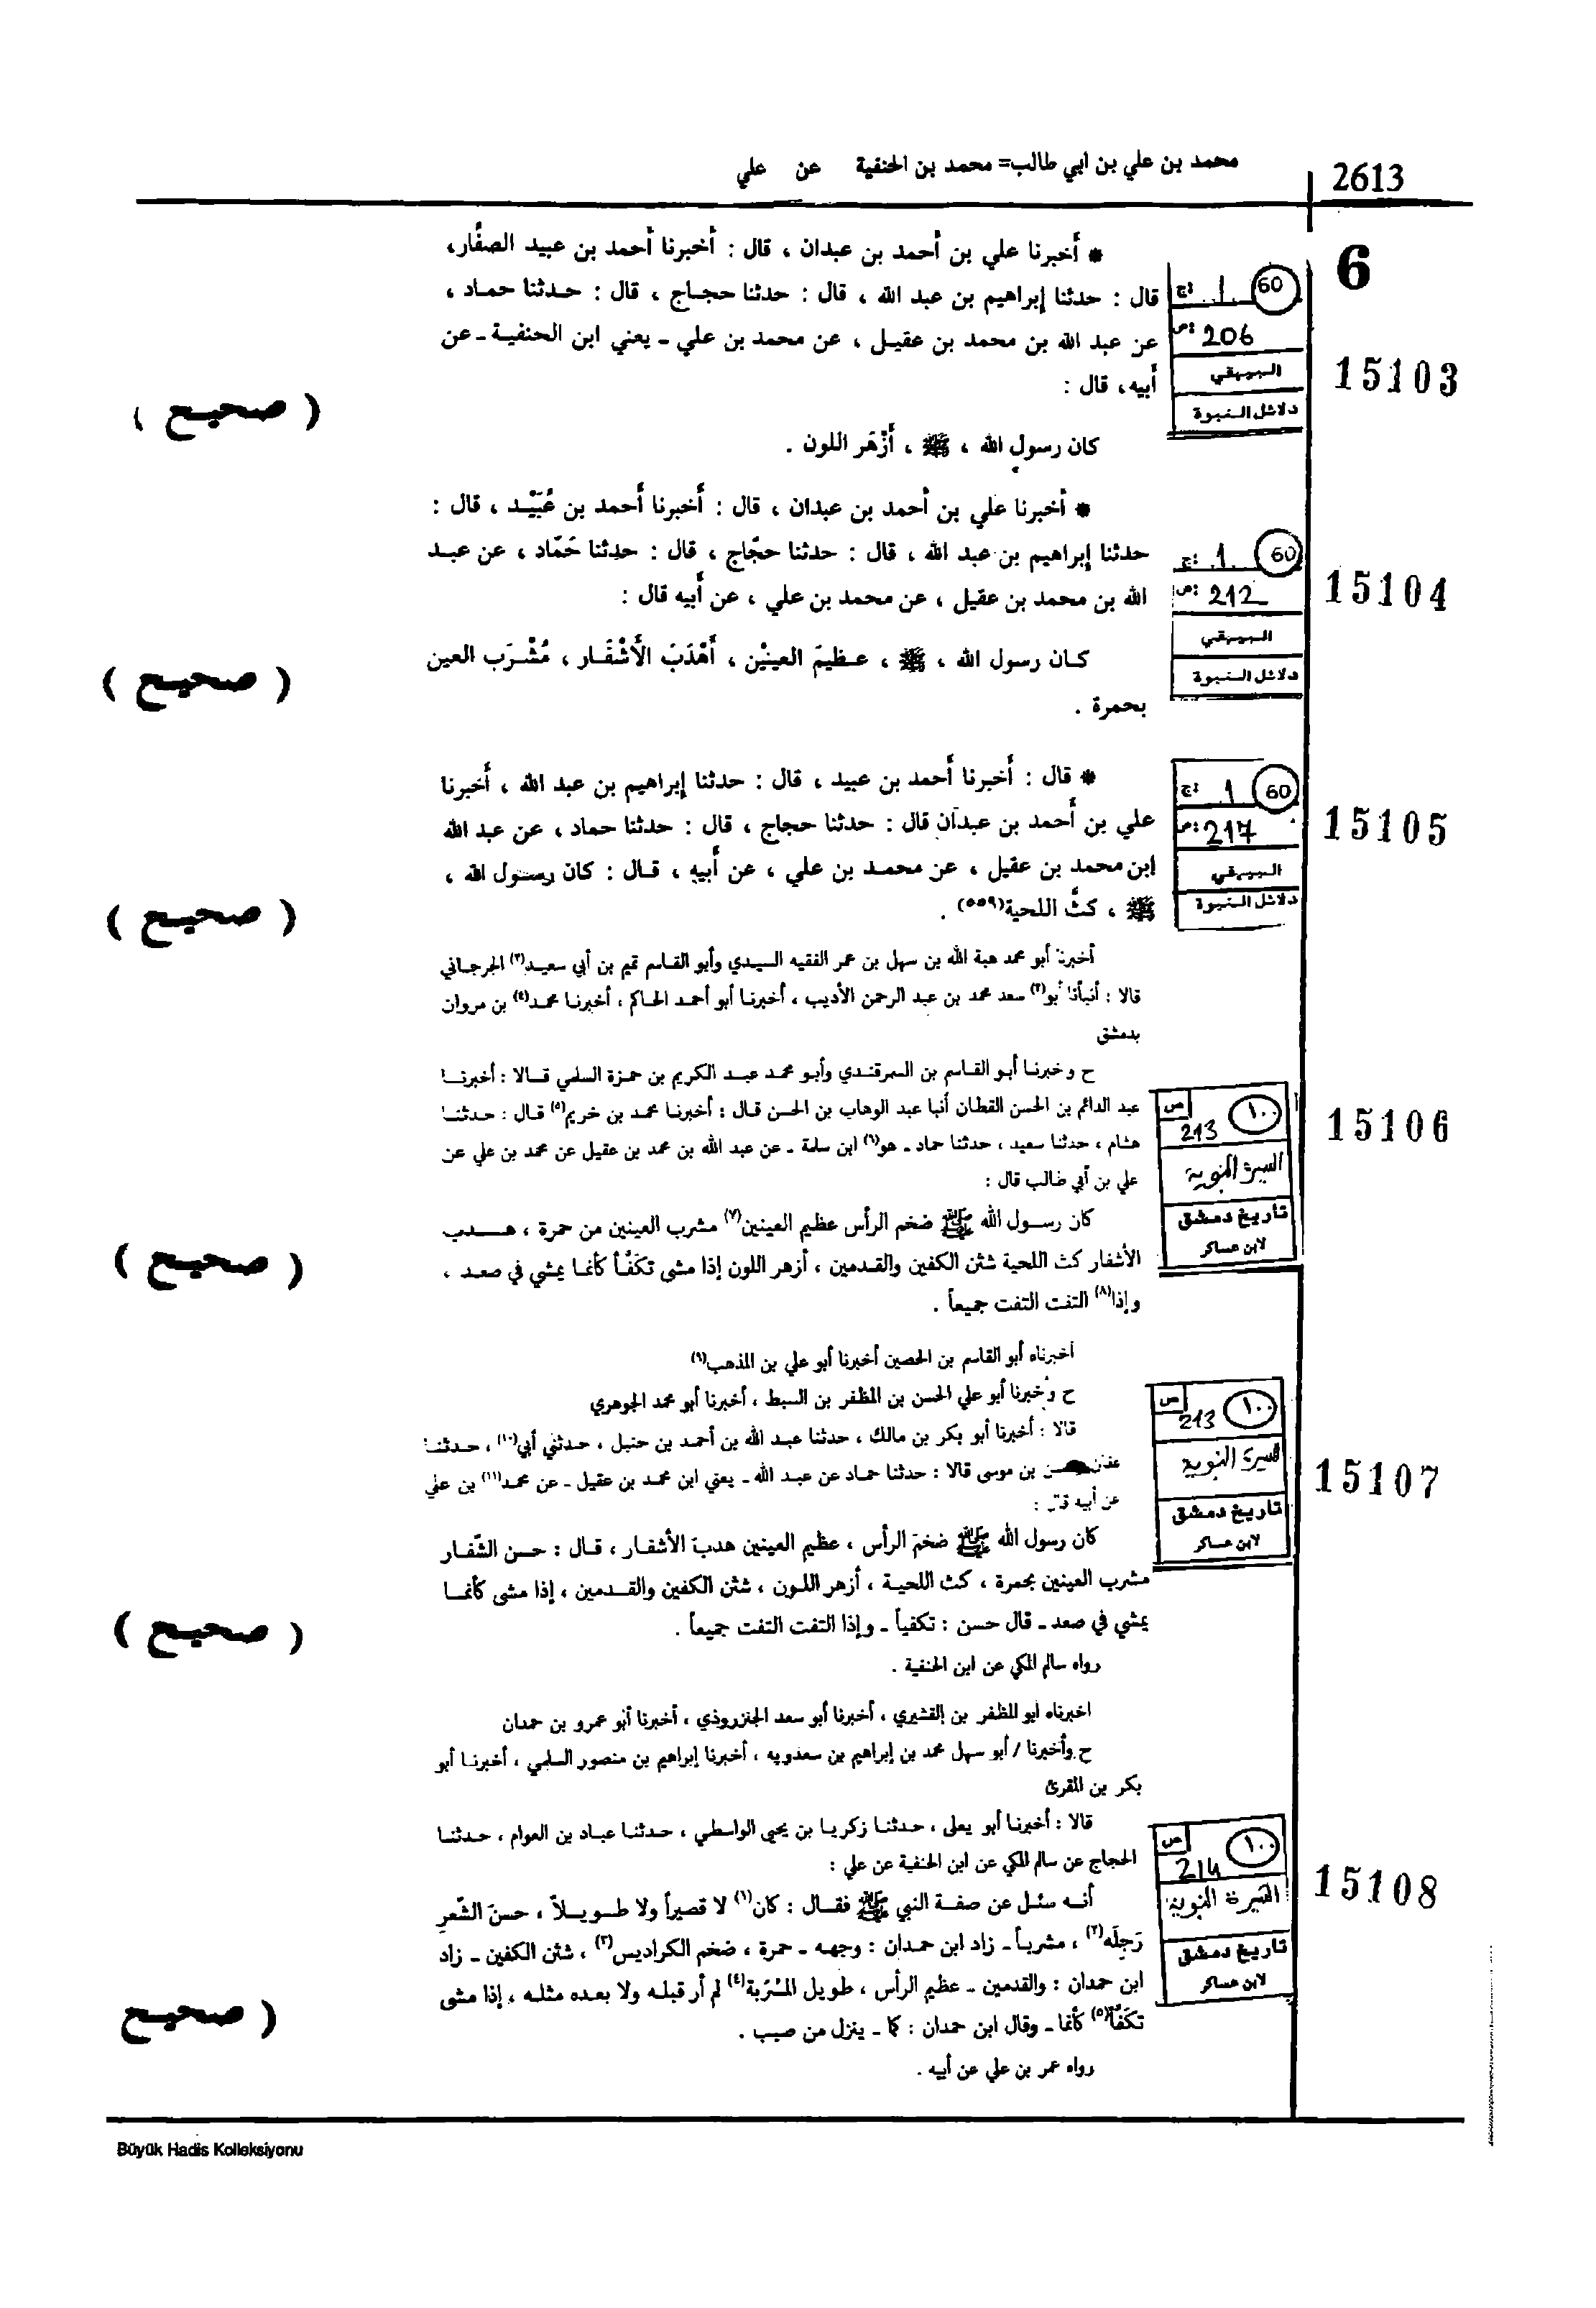 2613
محمد بن علي بن ابي طالب= محمد بن الحنفية عن علي
6
* أخبرنا علي بن أحمد بن عبدان ، قال : أخبرنا أحمد بن عبيد الصفّار،
قال : حدثنا إبراهيم بن عبد الله ، قال : حدثنا حجاج ، قال : حدثنا حماد ،
عن عبد الله بن محمد بن عقيل ، عن محمد بن علي ـ يعني ابن الحنفية ـ عن
أبيه، قال :
كان رسول الله ، ﷺ ، أَزْهَر اللون .
60 1 ج:
ص: 206
البيهقي
دلائل النبوة
15103
( صحيح )
* أخبرنا علي بن أحمد بن عبدان ، قال : أخبرنا أحمد بن عُبَيْد ، قال :
حدثنا إبراهيم بن عبد الله ، قال : حدثنا حجّاج ، قال : حدثنا حَمّاد ، عن عبد
الله بن محمد بن عقيل ، عن محمد بن علي ، عن أبيه قال :
كان رسول الله ، ﷺ ، عظيمَ العينيْن ، أَهْدَبَ الأَشْفَار ، مُشْرَب العين
بحمرة .
60 1 ج:
ص: 212
البيهقي
دلائل النبوة
15104
( صحيح )
* قال : أخبرنا أحمد بن عبيد ، قال : حدثنا إبراهيم بن عبد الله ، أخبرنا
علي بن أحمد بن عبدان قال : حدثنا حجاج ، قال : حدثنا حماد ، عن عبد الله
ابن محمد بن عقيل ، عن محمد بن علي ، عن أبيه ، قال : كان رسول الله ،
ﷺ ، كثَّ اللحية(٥٥٩) .
60 1 ج:
ص: 217
البيهقي
دلائل النبوة
15105
( صحيح )
أخبرنا أبو محمد هبة الله بن سهل بن عمر الفقيه السيدي وأبو القاسم تميم بن أبي سعيد(٢) الجرجاني
قالا : أنبأنا أبو(٣) سعد محمد بن عبد الرحمن الأديب ، أخبرنا أبو أحمد الحاكم ، أخبرنا محمد(٤) بن مروان
بدمشق
ح وخبرنا أبو القاسم بن السمرقندي وأبو محمد عبد الكريم بن حمزة السلمي قالا : أخبرنا
عبد الدائم بن الحسن القطان أنبا عبد الوهاب بن الحسن قال : أخبرنا محمد بن خريم(٥) قال : حدثنا
هشام ، حدثنا سعيد ، حدثنا حماد ـ هو(٦) ابن سلمة ـ عن عبد الله بن محمد بن عقيل عن محمد بن علي عن
علي بن أبي طالب قال :
كان رسول الله ﷺ ضخم الرأس عظيم العينين(٧) مشرب العينين من حمرة ، هدب
الأشفار كث اللحية شثن الكفين والقدمين ، أزهر اللون إذا مشى تكفّأ كأنما يمشي في صعد ،
وإذا(٨) التفت التفت جميعاً .
ص ١٠٠
213
السيرة النبوية
تاريخ دمشق
لابن عساكر
15106
( صحيح )
أخبرناه أبو القاسم بن الحصين أخبرنا أبو علي بن المذهب(٩)
ح وخبرنا أبو علي الحسن بن المظفر بن السبط ، أخبرنا أبو محمد الجوهري
قالا : أخبرنا أبو بكر بن مالك ، حدثنا عبد الله بن أحمد بن حنبل ، حدثني أبي(١٠) ، حدثنا
عفان بن موسى قالا : حدثنا حماد عن عبد الله ـ يعني ابن محمد بن عقيل ـ عن محمد(١١) بن علي
عن أبيه قال :
كان رسول الله ﷺ ضخمَ الرأس ، عظيم العينين هدبَ الأشفار ، قال : حسن الشّفار
مشرب العينين بحمرة ، كث اللحية ، أزهر اللون ، شثن الكفين والقدمين ، إذا مشى كأنما
يمشي في صعد ـ قال حسن : تكفياً ـ وإذا التفت التفت جميعاً .
رواه سالم المكي عن ابن الحنفية .
ص ١٠٠
213
السيرة النبوية
تاريخ دمشق
لابن عساكر
15107
( صحيح )
اخبرناه ابو المظفر بن القشيري ، أخبرنا أبو سعد الجنزروذي ، أخبرنا أبو عمرو بن حمدان
ح وأخبرنا / أبو سهل محمد بن إبراهيم بن سعدويه ، أخبرنا إبراهيم بن منصور السلمي ، أخبرنا أبو
بكر بن المقرئ
قالا : أخبرنا أبو يعلى ، حدثنا زكريا بن يحيى الواسطي ، حدثنا عباد بن العوام ، حدثنا
الحجاج عن سالم المكي عن ابن الحنفية عن علي :
أنه سئل عن صفة النبي ﷺ فقال : كان(١) لا قصيراً ولا طويلاً ، حسنَ الشّعرِ
رَجِلَه(٢) ، مشرباً ـ زاد ابن حمدان : وجهه ـ حمرة ، ضخم الكراديس(٣) ، شثن الكفين ـ زاد
ابن حمدان : والقدمين ـ عظيم الرأس ، طويل المسْرُبة(٤) لم أر قبله ولا بعده مثله ، إذا مشى
تكفّأ(٥) كأنما ـ وقال ابن حمدان : كما ـ ينزل من صبب .
رواه عمر بن علي عن أبيه .
ص ١٠٠
214
السيرة النبوية
تاريخ دمشق
لابن عساكر
15108
( صحيح
Büyük Hadis Kolleksiyonu